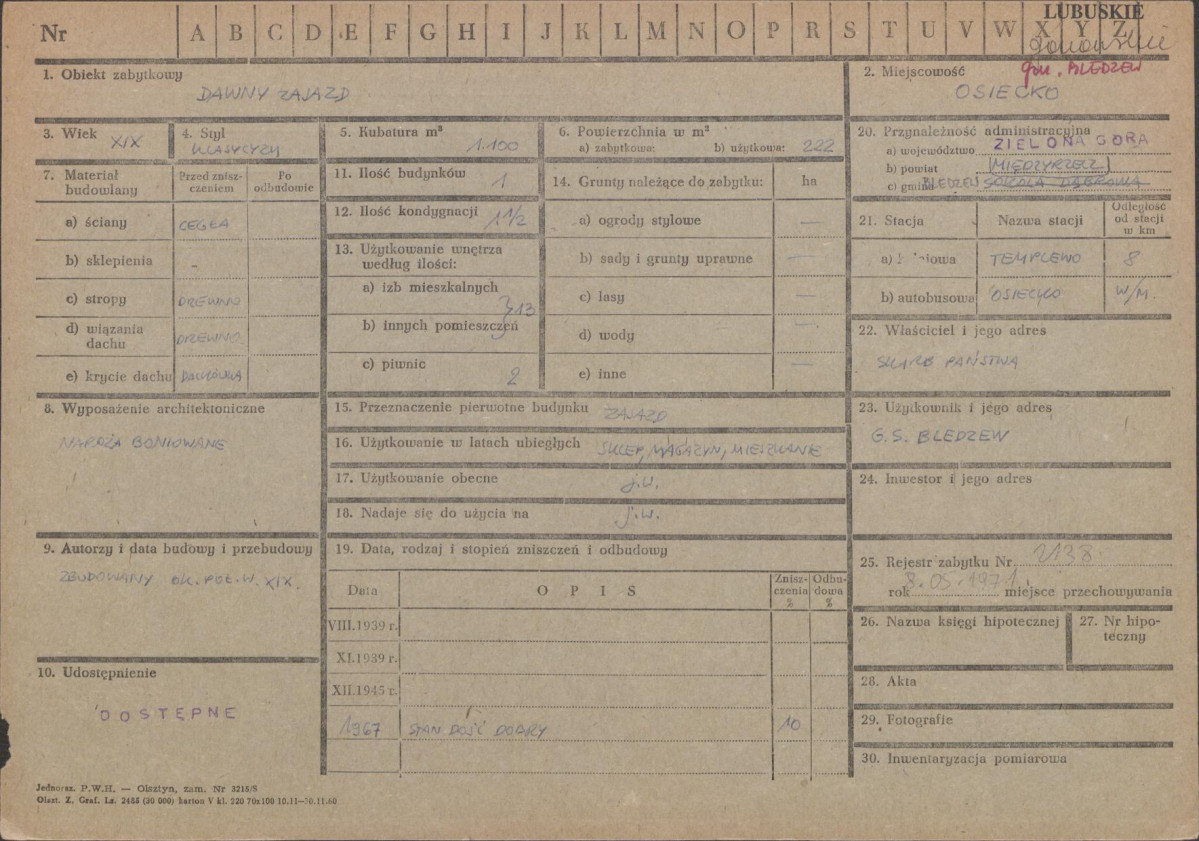 Nr A B C D E F G H I J K L M N O P R S T U V W X Y Z
LUBUSKIE
gm. BLEDZEW
1. Obiekt zabytkowy
DAWNY ZAJAZD
2. Miejscowość
OSIECKO
3. Wiek XIX
4. Styl
KLASYCYZM
5. Kubatura m³
1.100
6. Powierzchnia w m²
a) zabytkowa: b) użytkowa: 222
20. Przynależność administracyjna
a) województwo ZIELONA GÓRA
b) powiat (MIĘDZYRZECZ)
c) gmina BLEDZEW SOKOLA DĄBROWA
7. Materiał budowlany
Przed zniszczeniem
Po odbudowie
a) ściany CEGŁA
b) sklepienia -
c) stropy DREWNO
d) wiązania dachu DREWNO
e) krycie dachu DACHÓWKA
11. Ilość budynków 1
12. Ilość kondygnacji 1 1/2
13. Użytkowanie wnętrza
według ilości:
a) izb mieszkalnych
} 13
b) innych pomieszczeń
c) piwnic 2
14. Grunty należące do zabytku: ha
a) ogrody stylowe —
b) sady i grunty uprawne —
c) lasy —
d) wody —
e) inne —
21. Stacja Nazwa stacji Odległość
od stacji
w km
TEMPLEWO 8
b) autobusowa OSIECKO W/M.
22. Właściciel i jego adres
SKARB PAŃSTWA
8. Wyposażenie architektoniczne
NAROŻA BONIOWANE
15. Przeznaczenie pierwotne budynku ZAJAZD
16. Użytkowanie w latach ubiegłych SKLEP, MAGAZYN, MIESZKANIE
17. Użytkowanie obecne j.w.
18. Nadaje się do użycia na j.w.
23. Użytkownik i jego adres
G.S. BLEDZEW
24. Inwestor i jego adres
9. Autorzy i data budowy i przebudowy
ZBUDOWANY OK. POŁ. W. XIX.
10. Udostępnienie
DOSTĘPNE
19. Data, rodzaj i stopień zniszczeń i odbudowy
Data OPIS Zniszczenia % Odbudowa %
VIII.1939 r.
XI.1939 r.
XII.1945 r.
1967 STAN DOŚĆ DOBRY 10
25. Rejestr zabytku Nr 2138
rok 8.05.1971. miejsce przechowywania
26. Nazwa księgi hipotecznej
27. Nr hipoteczny
28. Akta
29. Fotografie
30. Inwentaryzacja pomiarowa
Jednoraz. P.W.H. — Olsztyn, zam. Nr 3215/S
Olszt. Z. Graf. Lz. 2485 (30 000) karton V kl. 220 70x100 10.11—30.11.60